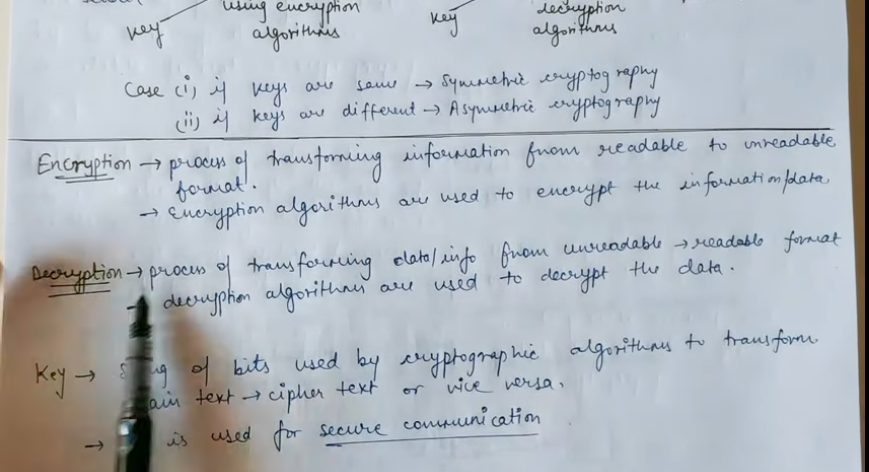 using encryption
decryption
Key algorithms Key algorithms
Case (i) if keys are same → Symmetric cryptography
(ii) if keys are different → Asymmetric cryptography
Encryption → process of transforming information from readable to unreadable
format.
→ Encryption algorithms are used to encrypt the information/data
Decryption → process of transforming data/info from unreadable → readable format
→ decryption algorithms are used to decrypt the data.
Key → of bits used by cryptographic algorithms to transform
text → cipher text or vice versa.
→ is used for secure communication